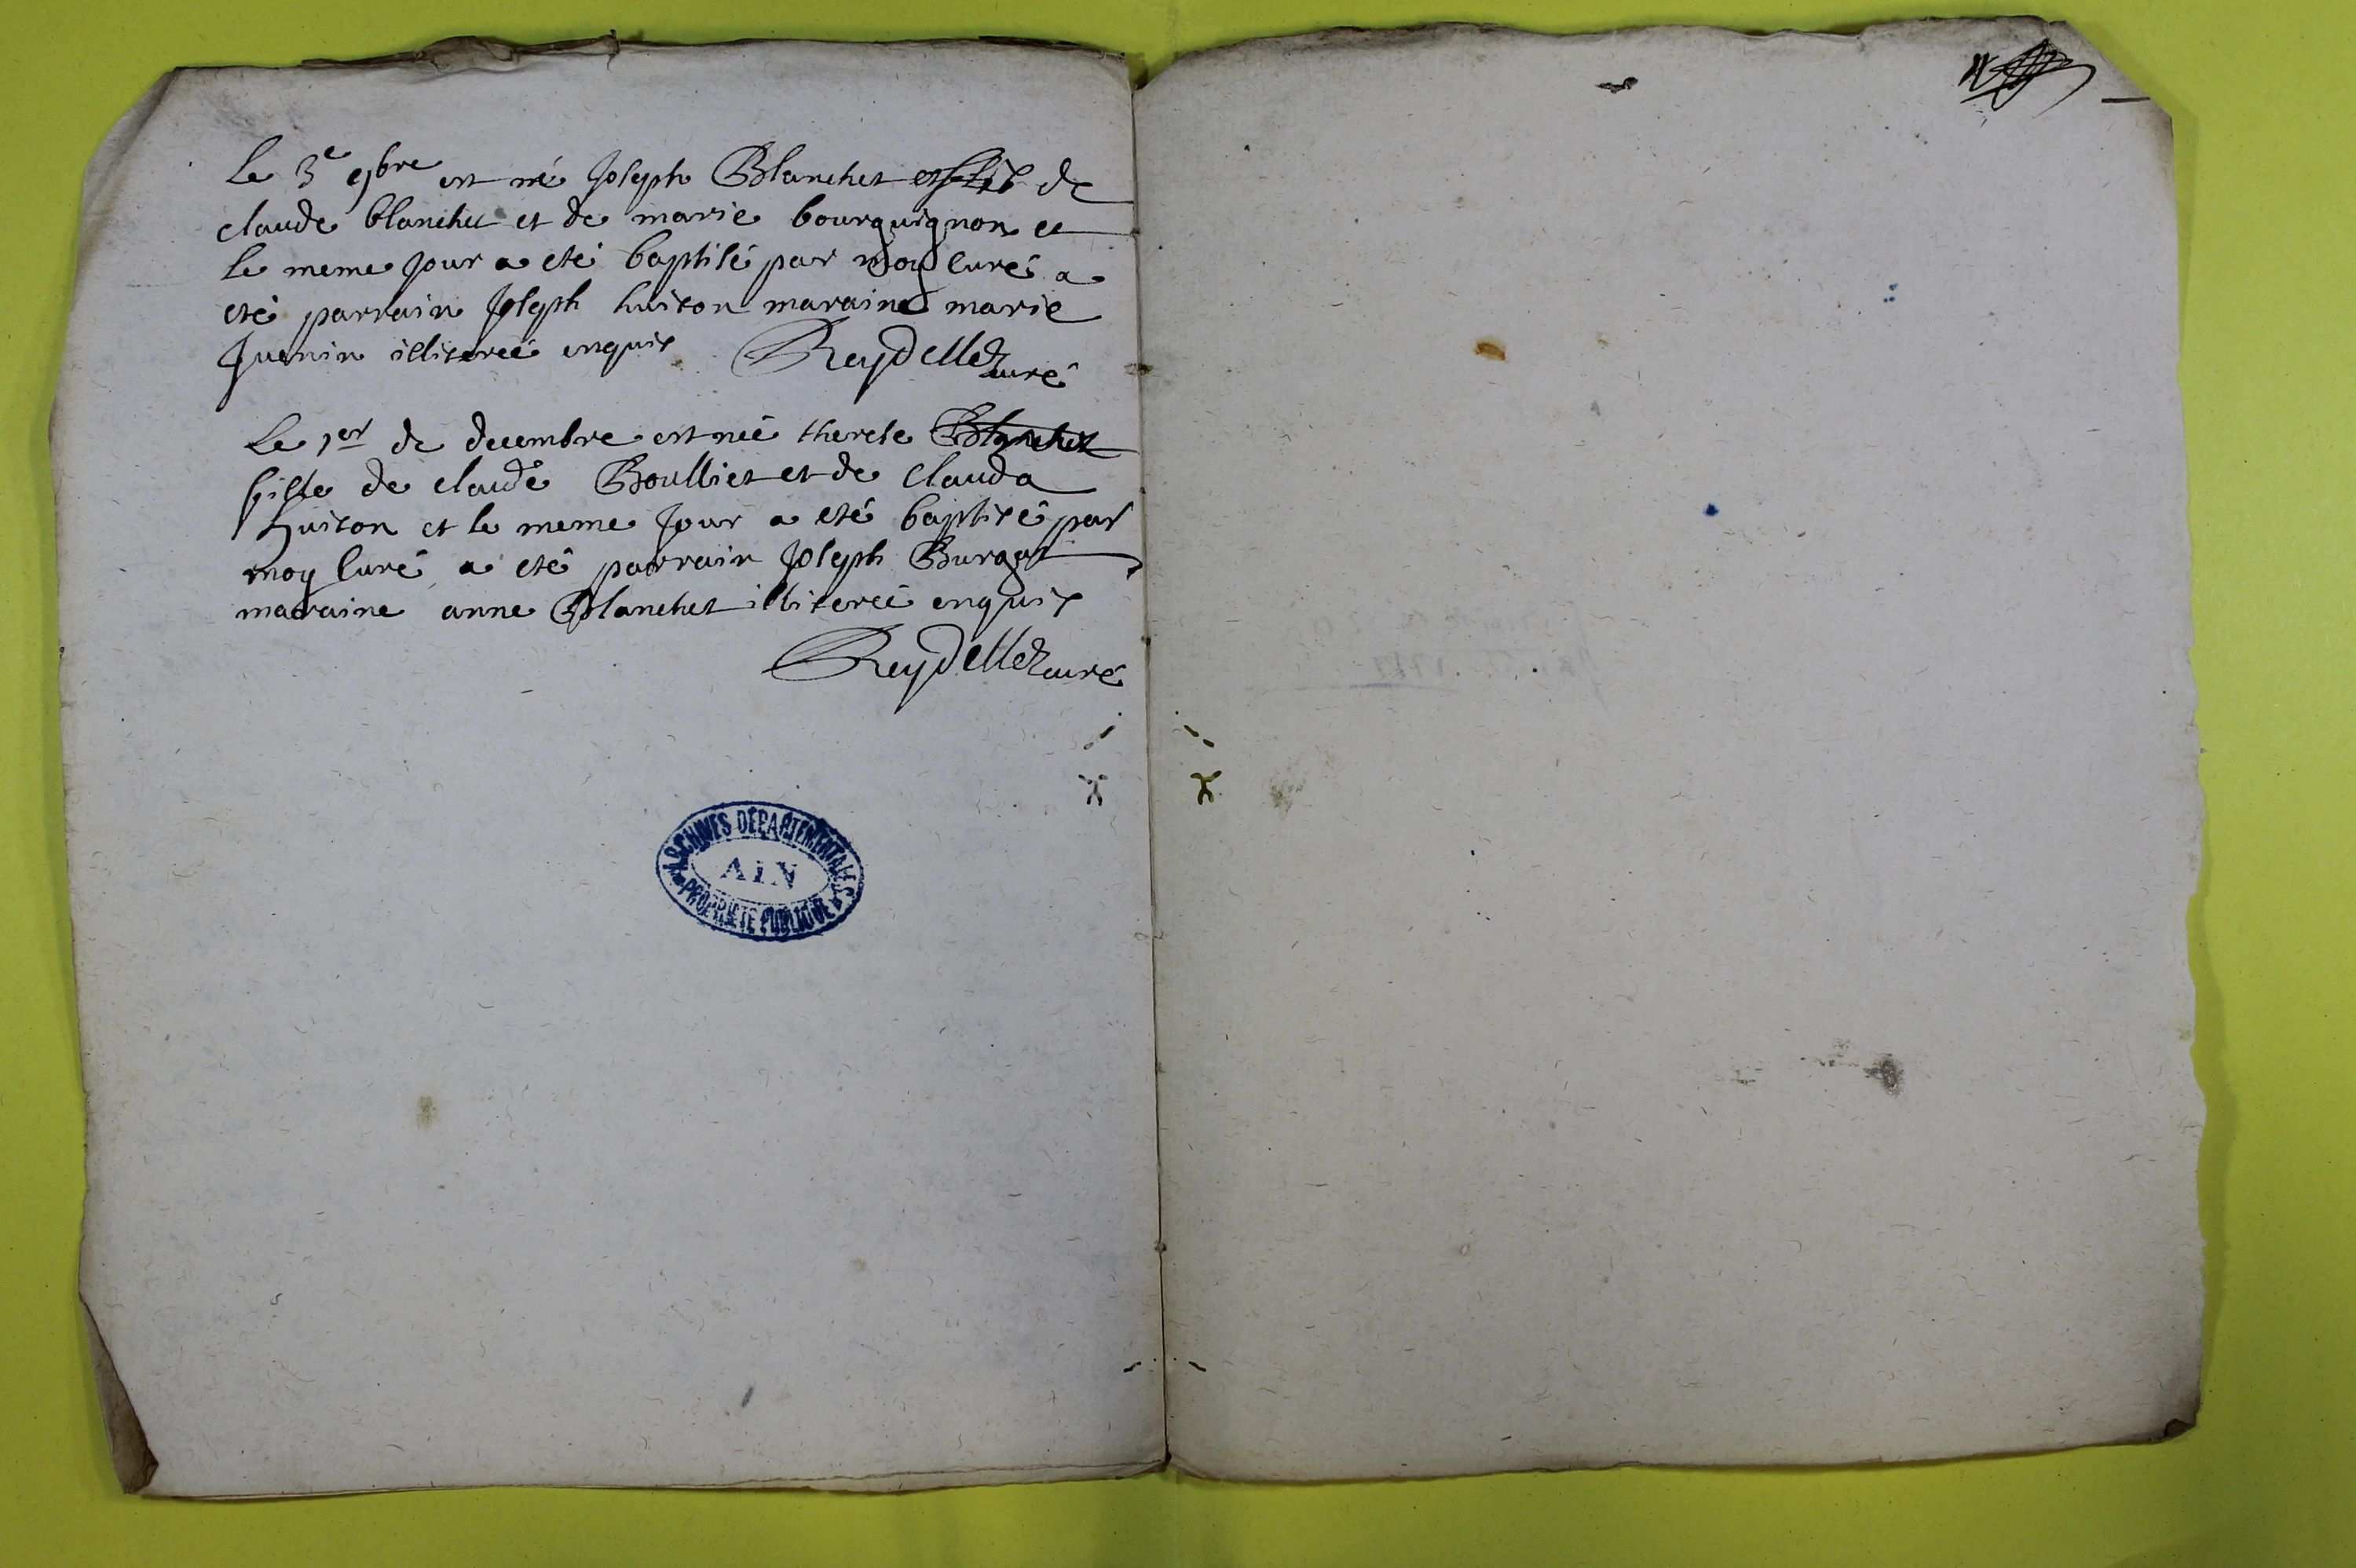 Le 3e 9bre est né Joseph Blanchet de
claude blanchet et de marie bourguignon et
le meme Jour a eté baptisé par moy Curé a
eté parrain Joseph huiton maraine marie
Juenin illiteréé enquis Reydellet curé
Le 1er de decembre est néé therese Blanchet
fille de claude Boulliet et de Clauda
huiton et le meme Jour a eté baptisé par
moy Curé a eté parrain Joseph Burgat
maraine anne Blanchet illiteréé enquis
Reydellet curé
ARCHIVES DÉPARTEMENTALES
AIN
PROPRIÉTÉ PUBLIQUE